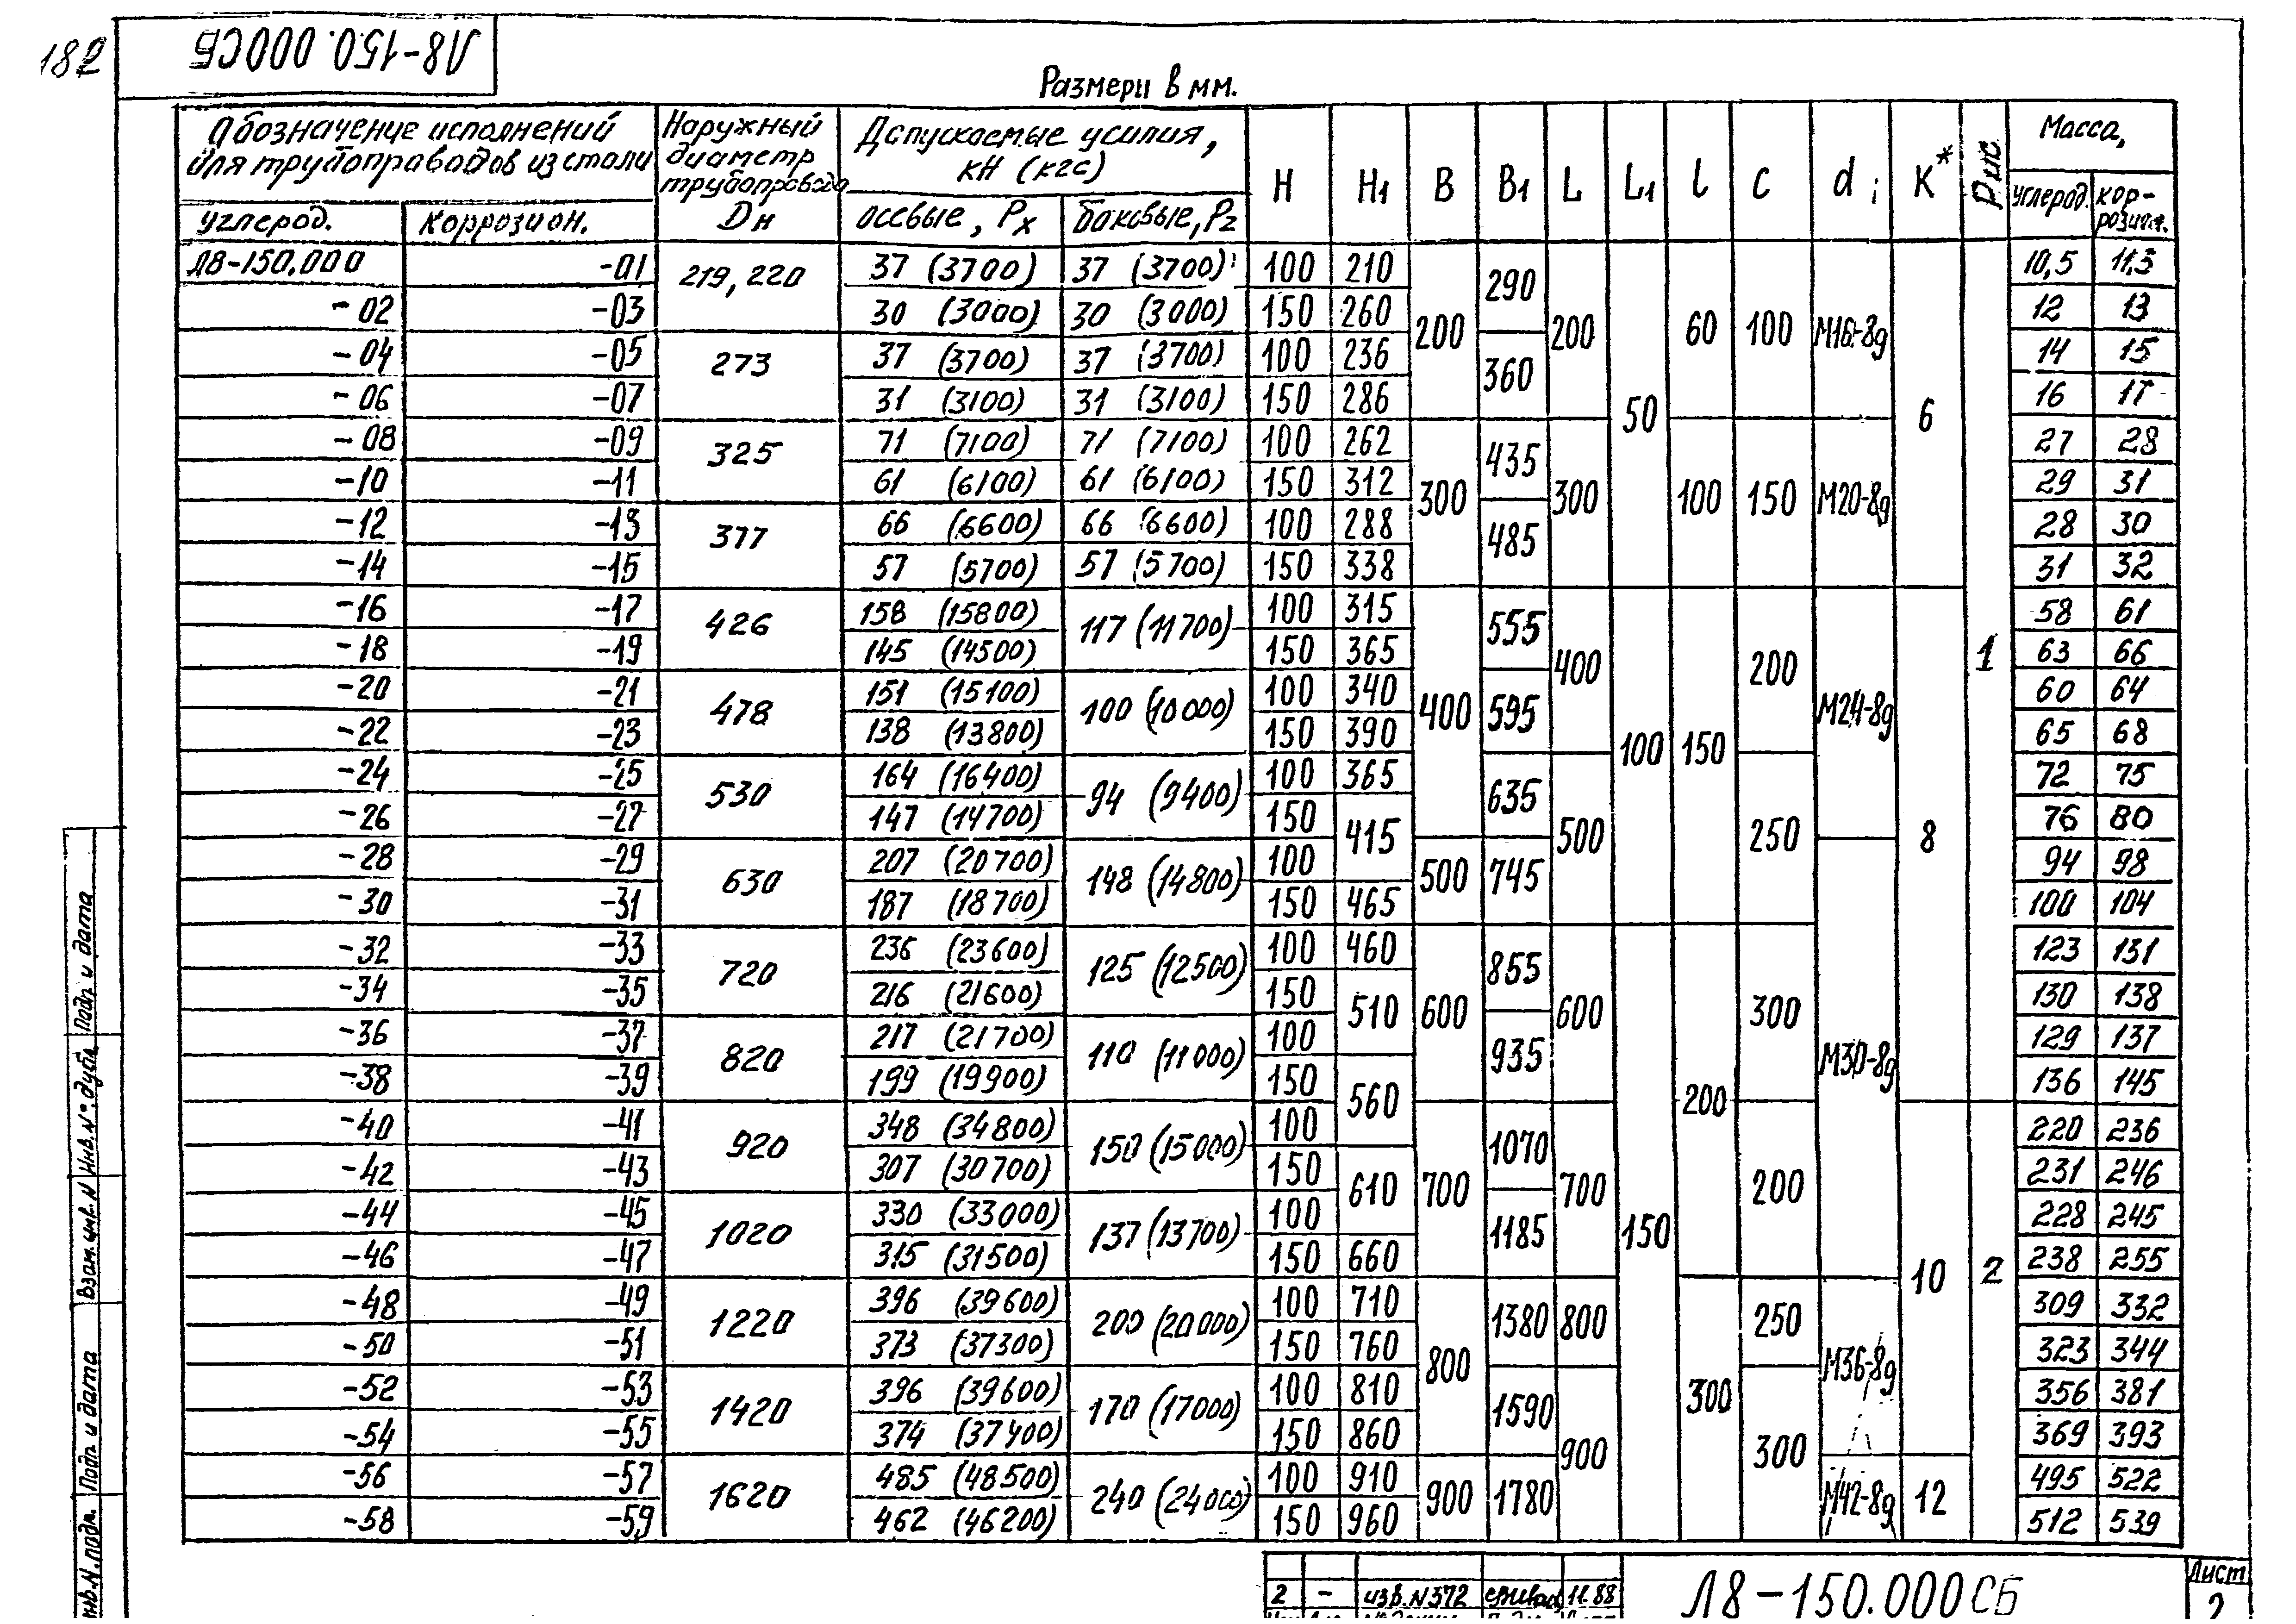 182
Л8-150.000СБ
Размеры в мм.
Обозначение исполнений для трубопроводов из стали | Наружный диаметр трубопровода Dн | Допускаемые усилия, кН (кгс) | H | H1 | B | B1 | L | L1 | l | c | d | K* | Рис. | Масса,
углерод. | коррозион. | осевые, Px | боковые, Pz | углерод. | кор-розион.
Л8-150.000 | -01 | 219, 220 | 37 (3700) | 37 (3700) | 100 | 210 | 200 | 290 | 200 | 50 | 60 | 100 | М16-8g | 6 | 1 | 10,5 | 11,5
-02 | -03 | 30 (3000) | 30 (3000) | 150 | 260 | 12 | 13
-04 | -05 | 273 | 37 (3700) | 37 (3700) | 100 | 236 | 360 | 14 | 15
-06 | -07 | 31 (3100) | 31 (3100) | 150 | 286 | 16 | 17
-08 | -09 | 325 | 71 (7100) | 71 (7100) | 100 | 262 | 300 | 435 | 300 | 100 | 150 | М20-8g | 27 | 28
-10 | -11 | 61 (6100) | 61 (6100) | 150 | 312 | 29 | 31
-12 | -13 | 377 | 66 (6600) | 66 (6600) | 100 | 288 | 485 | 28 | 30
-14 | -15 | 57 (5700) | 57 (5700) | 150 | 338 | 31 | 32
-16 | -17 | 426 | 158 (15800) | 117 (11700) | 100 | 315 | 400 | 555 | 400 | 100 | 150 | 200 | М24-8g | 8 | 58 | 61
-18 | -19 | 145 (14500) | 150 | 365 | 63 | 66
-20 | -21 | 478 | 151 (15100) | 100 (10000) | 100 | 340 | 595 | 60 | 64
-22 | -23 | 138 (13800) | 150 | 390 | 65 | 68
-24 | -25 | 530 | 164 (16400) | 94 (9400) | 100 | 365 | 635 | 500 | 250 | 72 | 75
-26 | -27 | 147 (14700) | 150 | 415 | 76 | 80
-28 | -29 | 630 | 207 (20700) | 148 (14800) | 100 | 500 | 745 | М30-8g | 94 | 98
-30 | -31 | 187 (18700) | 150 | 465 | 100 | 104
-32 | -33 | 720 | 236 (23600) | 125 (12500) | 100 | 460 | 600 | 855 | 600 | 150 | 200 | 300 | 123 | 131
-34 | -35 | 216 (21600) | 150 | 510 | 130 | 138
-36 | -37 | 820 | 217 (21700) | 110 (11000) | 100 | 935 | 129 | 137
-38 | -39 | 199 (19900) | 150 | 560 | 136 | 145
-40 | -41 | 920 | 348 (34800) | 150 (15000) | 100 | 700 | 1070 | 700 | 200 | 10 | 2 | 220 | 236
-42 | -43 | 307 (30700) | 150 | 610 | 231 | 246
-44 | -45 | 1020 | 330 (33000) | 137 (13700) | 100 | 1185 | 228 | 245
-46 | -47 | 315 (31500) | 150 | 660 | 238 | 255
-48 | -49 | 1220 | 396 (39600) | 200 (20000) | 100 | 710 | 800 | 1380 | 800 | 300 | 250 | М36-8g | 309 | 332
-50 | -51 | 373 (37300) | 150 | 760 | 323 | 344
-52 | -53 | 1420 | 396 (39600) | 170 (17000) | 100 | 810 | 1590 | 900 | 300 | 356 | 381
-54 | -55 | 374 (37400) | 150 | 860 | 369 | 393
-56 | -57 | 1620 | 485 (48500) | 240 (24000) | 100 | 910 | 900 | 1780 | М42-8g | 12 | 495 | 522
-58 | -59 | 462 (46200) | 150 | 960 | 512 | 539
Подп и дата
Инв.№ дубл
Взам.инв.N
Подп и дата
Инв.N подм.
2 - изв.N372 11.88
Л8-150.000СБ
Лист
2